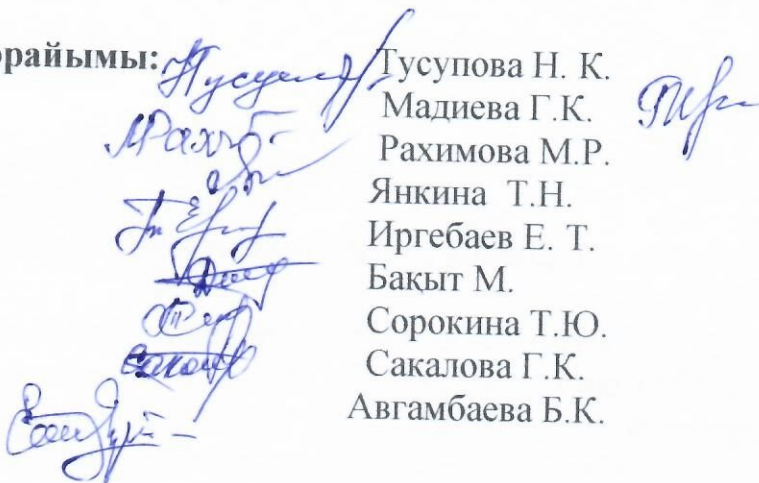 орайымы: Тусупова Н. К.
Мадиева Г.К.
Рахимова М.Р.
Янкина Т.Н.
Иргебаев Е. Т.
Бақыт М.
Сорокина Т.Ю.
Сакалова Г.К.
Авгамбаева Б.К.